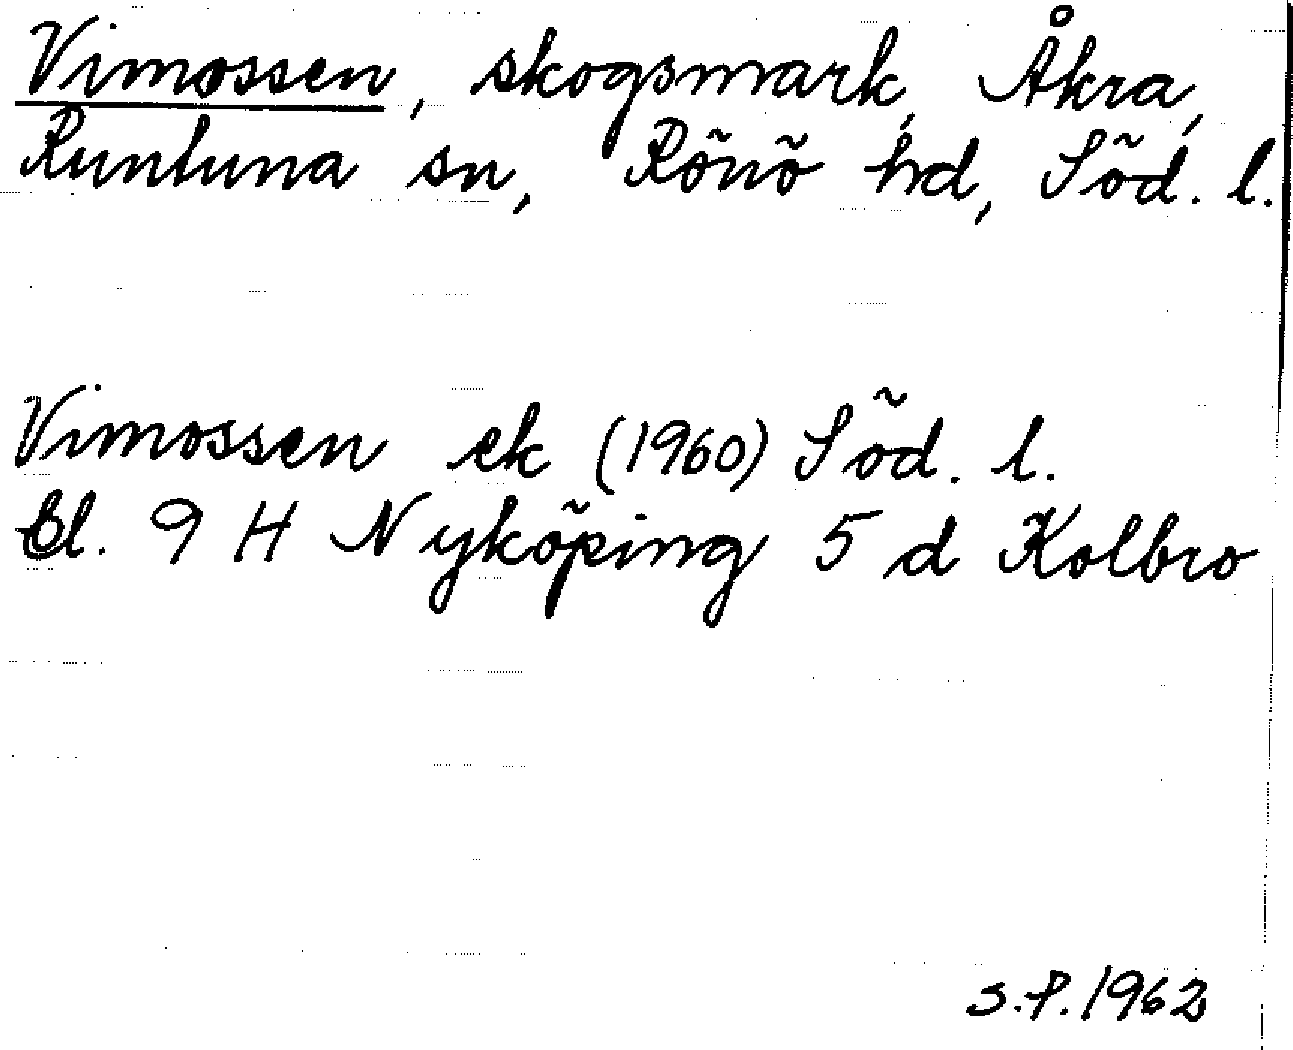 Vimossen, skogsmark, Åkra,
Runtuna sn, Rönö hd, Söd. l.
Vimossen ek (1960) Söd. l.
Bl. 9 H Nyköping 5 d Kolbro
S.P. 1962